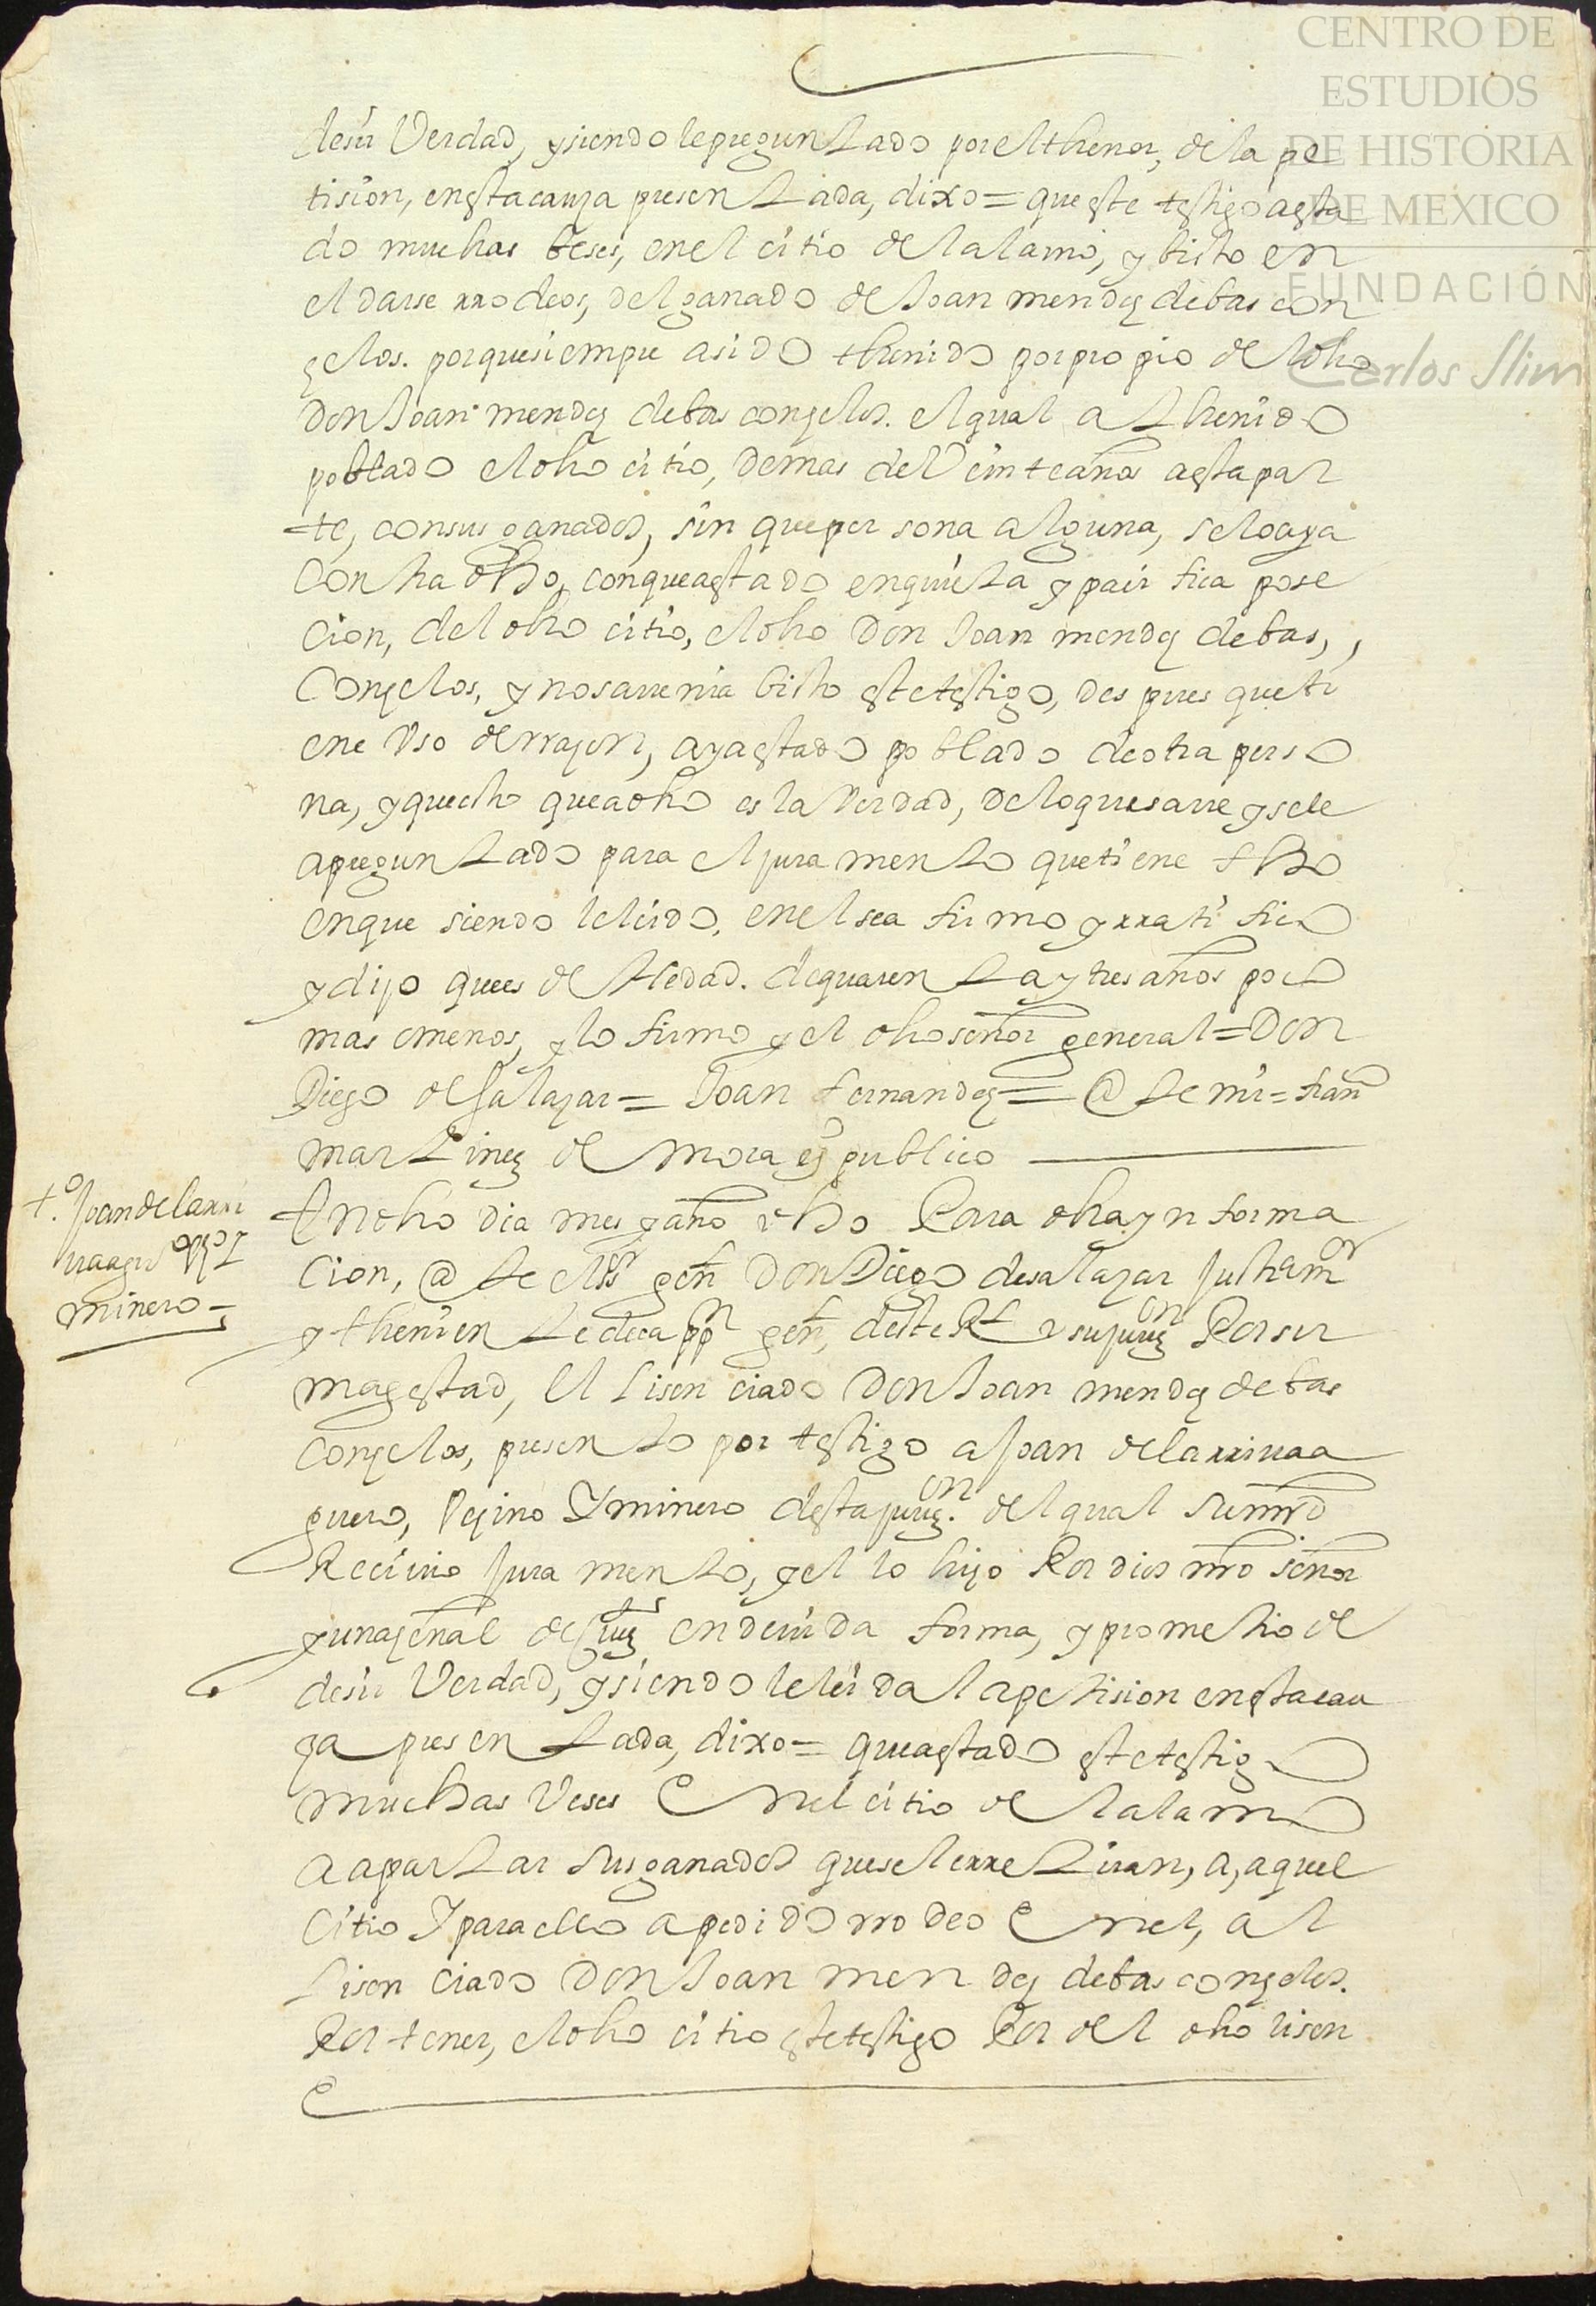 CENTRO DE
ESTUDIOS
DE HISTORIA
DE MEXICO
FUNDACIÓN
Carlos Slim
desir Verdad, y siendole preguntado por el thenor, de la pe
tision, en esta causa presentada, dixo = que este testigo a esta
do muchas beses, en el citio del alamo, y bisto en
el darse rrodeos, del ganado de Joan mendez de bascon
zelos. porque siempre a sido thenido por propio del dho
Don Joan mendez de basconzelos. el qual a thenido
poblado el dho citio, de mas de Veinte años a esta par
te, con sus ganados, sin que persona alguna, se lo aya
Contradho, con que a estado en quieta y pacifica pose
cion, del dho citio, el dho Don Joan mendez de bas,,
Conzelos, y no save ni a bisto este testigo, despues que ti
ene Vso de rrazon, aya estado poblado de otra perso
na, y que esto que a dho es la Verdad, de lo que save y se le
a preguntado para el juramento que tiene fho
en que siendole leido, en el se afirmo y rratifico
y dijo que es de Hedad. de quarenta y tres años poco
mas o menos, y lo firmo y el dho señor general = Don
Diego de Salazar = Joan fernandez = @te mi = fran
martinez de Mora es publico
t.o Joan de la rri
va agu
minero =
En dho dia mes y año dho Para dha ynforma
Cion, @te el sr gen Don Diego de salazar justa mor
y theniente de capp gen, deste Rl y su jurizon Por su
magestad, El Lisenciado Don Joan mendez de bas
Conzelos, presento por testigo a Joan de la rriva a
guero, Vezino Y minero desta jurizon. del qual su mrd
Recivio Juramento, y el lo hizo Por dios nro señor
y una señal de cruz en devida forma, y prometio de
desir Verdad, y siendole leida la petision en esta cau
za presentada, dixo = que a estado este testigo
muchas Veses En el citio del alamo
a apartar sus ganados que se le rretiran, a, aquel
Citio Y para ello a pedido rrodeo En el, al
Lisenciado Don Joan mendez de basconzelos.
Por tener, el dho citio este testigo Por del dho lisen